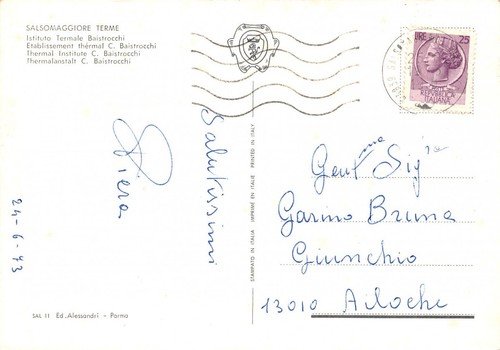 SALSOMAGGIORE TERME
Istituto Termale Baistrocchi
Etablissement thérmal C. Baistrocchi
Thermal Institute C. Baistrocchi
Thermalanstalt C. Baistrocchi
LIRE 25
REPUBBLICA
ITALIANA
Salutissimi
Piera
24-6-73
STAMPATO IN ITALIA IMPRIMÉ EN ITALIE PRINTED IN ITALY
Gent me Sig re
Garino Bruna
Giunchio
13010 Ailoche
SAL 11 Ed. Alessandri - Parma